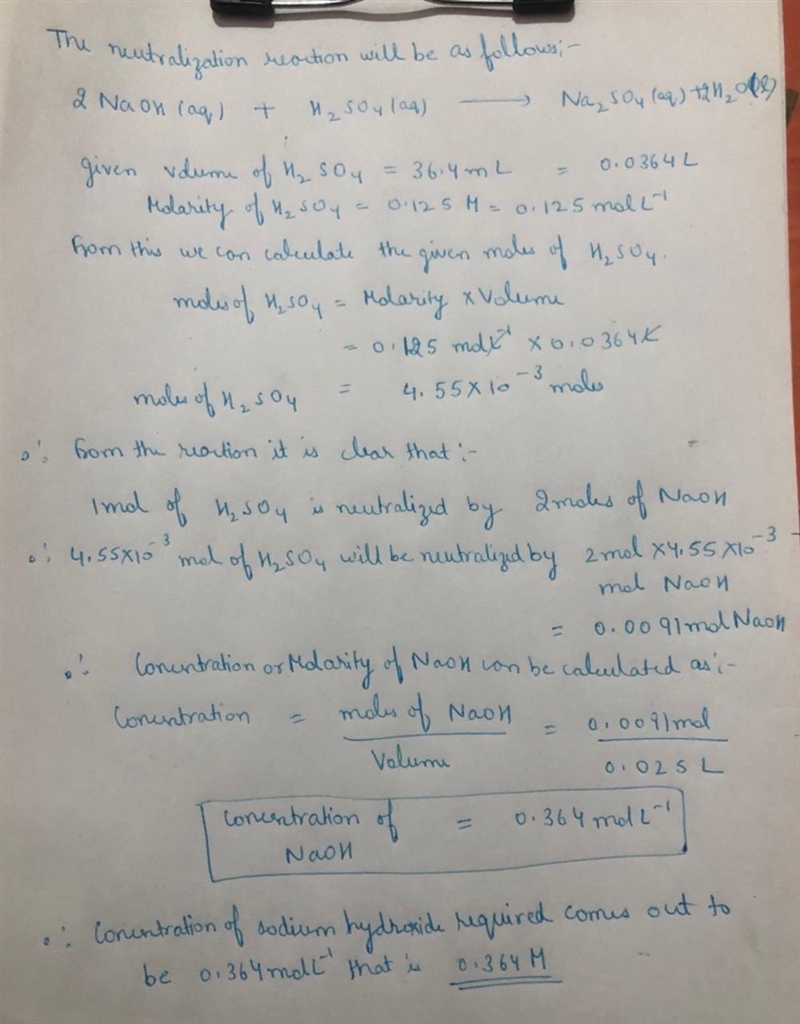 The neutralization reaction will be as follows:-
2 NaOH (aq) + H2SO4 (aq) ⟶ Na2SO4 (aq) + 2H2O(l)
given volume of H2SO4 = 36.4 mL = 0.0364 L
Molarity of H2SO4 = 0.125 M = 0.125 mol L⁻¹
from this we can calculate the given moles of H2SO4.
moles of H2SO4 = Molarity x Volume
= 0.125 mol L⁻¹ x 0.0364 L
moles of H2SO4 = 4.55 x 10⁻³ moles
∴ from the reaction it is clear that :-
1 mol of H2SO4 is neutralized by 2 moles of NaOH
∴ 4.55x10⁻³ mol of H2SO4 will be neutralized by 2 mol x 4.55 x10⁻³
mol NaOH
= 0.0091 mol NaOH
∴ Concentration or Molarity of NaOH can be calculated as:-
Concentration = moles of NaOH / Volume = 0.0091 mol / 0.025 L
Concentration of = 0.364 mol L⁻¹
NaOH
∴ Concentration of sodium hydroxide required comes out to
be 0.364 mol L⁻¹ that is 0.364 M